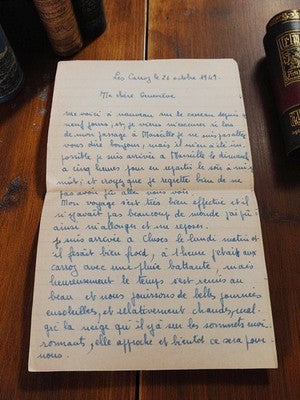 Les Carroz le 26 octobre 1949.
Ma chère Geneviève
me voici à nouveau sur le carreau depuis
neuf jours, et je viens m'excuser si lors
de mon passage à Marseille je ne suis pas allée
vous dire bonjour, mais il m'en a été im
possible je suis arrivée à Marseille le dimanche
à cinq heures pour en repartir le soir à mi
nuit; et croyez que je regrette bien de ne
pas avoir pû aller vous voir.
Mon voyage s'est très bien effectué et il
n'y avait pas beaucoup de monde j'ai pû
ainsi m'allonger et me reposer.
je suis arrivée à Cluses le lundi matin et
il faisait bien froid, à 1 heure j'étais aux
carroz avec une pluie battante; mais
heureusement le temps s'est remis au
beau et nous jouissons de belles journées
ensoleillées, et relativement chaudes, mal
gré la neige qui il y a sur les sommets envi
ronnants, elle approche et bientôt ce sera pour
nous.